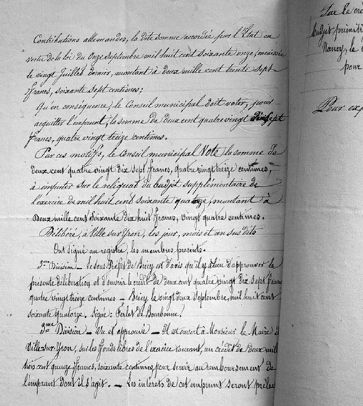 Contributions allemandes, la dite somme accordée par l'Etat en
vertu de la loi du onze septembre mil huit cent soixante onze,
le vingt juillet dernier, montant à deux mille cent trente sept
francs, soixante sept centimes;
Qu'en conséquence, le Conseil municipal doit voter, pour
acquitter l'emprunt, la somme de deux cent quatre vingt dix sept
francs, quatre vingt treize centimes.
Par ces motifs, le Conseil municipal Vote la somme de
deux cent quatre vingt dix sept francs, quatre vingt treize centimes,
à sur le reliquat du budget supplémentaire de
l'exercice de mil huit cent soixante quatorze, montant à
Deux mille cent soixante dix huit francs, vingt quatre centimes.
Délibéré, à Ville sur Yron, les jours, mois et an sus dits
Ont signé au registre, les membres présents.
Division - Le Sous Préfet de Briey est d'avis qu'il y a lieu d'approuver la
présente délibération et d'ouvrir le crédit de deux cent quatre vingt dix sept francs
quatre vingt treize centimes - Briey, le vingt deux septembre, mil huit cent
soixante quatorze. Signé:
2me Division - Vu et approuvé - Il est ouvert à Monsieur le Maire de
Ville sur Yron, sur les fonds libres de l'exercice courant, un crédit de Deux mille
francs, soixante centimes, pour servir au remboursement de
l'emprunt dont il s'agit. - Les intérêts de cet emprunt seront
Sur le
budget
Nancy, le
pour
Pour